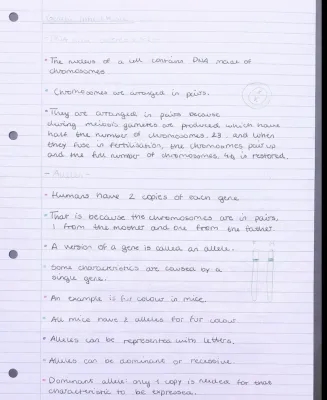 • The nucleus of a cell contains DNA made of
chromosomes.
• Chromosomes are arranged in pairs.
• They are arranged in pairs because
during meiosis gametes are produced which have
half the number of chromosomes, 23, and when
they fuse in fertilisation, the chromosomes pair up
and the full number of chromosomes, 46 is restored.
- Alleles -
• Humans have 2 copies of each gene
• That is because the chromosomes are in pairs,
1 from the mother and one from the father.
• A version of a gene is called an allele.
• Some characteristics are caused by a
single gene.
• An example is fur colour in mice.
• All mice have 2 alleles for fur colour
• Alleles can be represented with letters.
• Alleles can be dominant or recessive.
• Dominant allele: only 1 copy is needed for that
characteristic to be expressed.